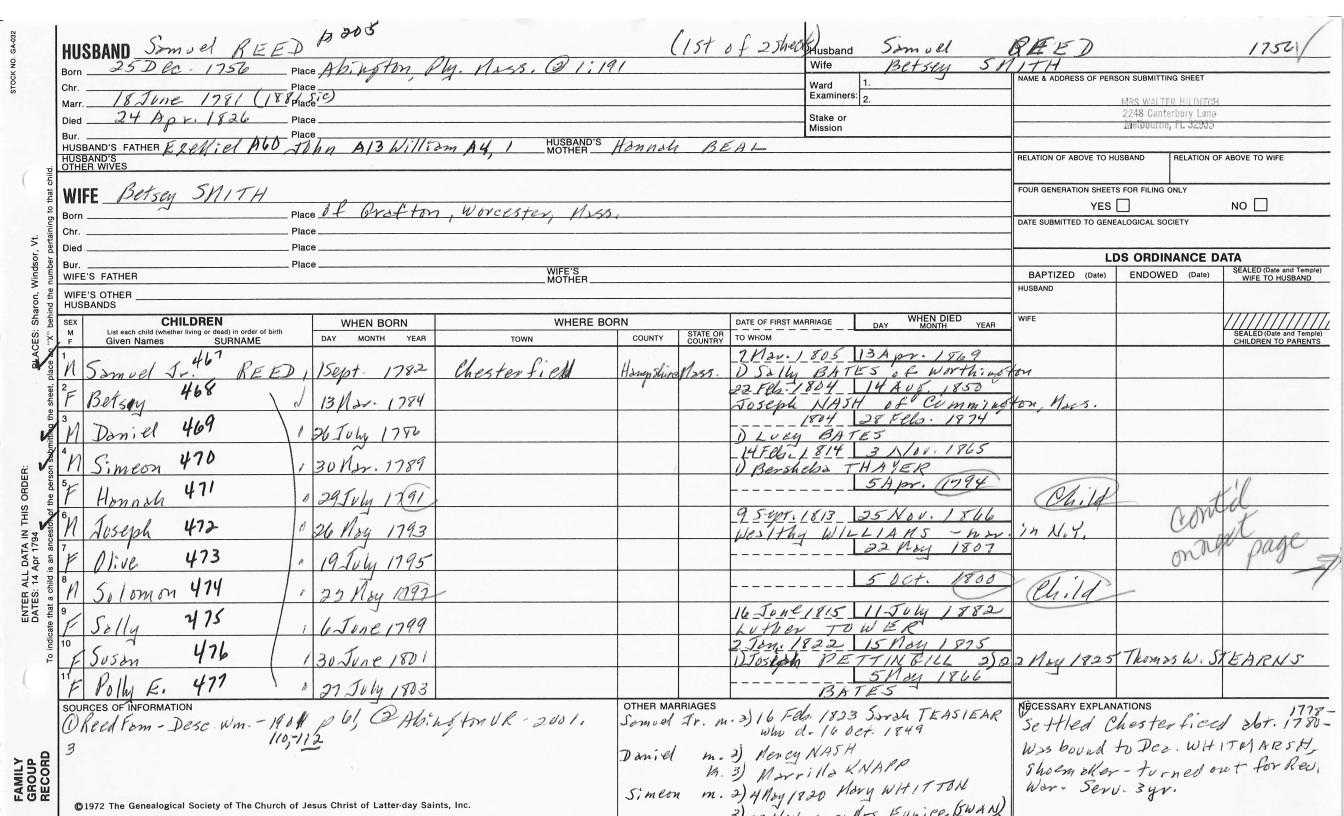 STOCK NO. GA-032
HUSBAND Samuel REED p 205 (1st of 2 sheets)
Born 25 Dec. 1756 Place Abington, Ply. Mass. @ 1:191
Chr. Place
Marr. 18 June 1781 (1881 sic) Place
Died 24 Apr. 1826 Place
Bur. Place
HUSBAND'S FATHER Ezekiel A60 John A13 William A4, 1 HUSBAND'S MOTHER Hannah BEAL
HUSBAND'S OTHER WIVES
WIFE Betsey SMITH
Born Place of Grafton, Worcester, Mass.
Chr. Place
Died Place
Bur. Place
WIFE'S FATHER WIFE'S MOTHER
WIFE'S OTHER HUSBANDS
Husband Samuel REED 1756
Wife Betsey SMITH
Ward Examiners: 1.
2.
Stake or Mission
NAME & ADDRESS OF PERSON SUBMITTING SHEET
MRS WALTER HILDITCH
2248 Canterbury Lane
Melbourne, FL 32935
RELATION OF ABOVE TO HUSBAND RELATION OF ABOVE TO WIFE
FOUR GENERATION SHEETS FOR FILING ONLY
YES NO
DATE SUBMITTED TO GENEALOGICAL SOCIETY
LDS ORDINANCE DATA
BAPTIZED (Date) ENDOWED (Date) SEALED (Date and Temple) WIFE TO HUSBAND
HUSBAND
WIFE
SEALED (Date and Temple) CHILDREN TO PARENTS
SEX M F CHILDREN WHEN BORN WHERE BORN DATE OF FIRST MARRIAGE WHEN DIED
List each child (whether living or dead) in order of birth
Given Names SURNAME DAY MONTH YEAR TOWN COUNTY STATE OR COUNTRY TO WHOM DAY MONTH YEAR
1 M Samuel Jr. 467 REED 1 Sept. 1782 Chesterfield Hampshire Mass. 7 Mar. 1805 13 Apr. 1869
1) Sally BATES of Worthington
2 F Betsey 468 13 Mar. 1784 22 Feb. 1804 14 Aug. 1850
Joseph NASH of Cummington, Mass.
3 M Daniel 469 26 July 1786 1804 28 Feb. 1874
1) Lucy BATES
4 M Simeon 470 30 Mar. 1789 14 Feb. 1814 3 Nov. 1865
1) Bersheba THAYER
5 F Hannah 471 29 July 1791 5 Apr. 1794 Child
6 M Joseph 472 26 May 1793 9 Sept. 1813 25 Nov. 1866
Wealthy WILLIAMS - mar. in N.Y.
7 F Olive 473 19 July 1795 22 May 1807
8 M Solomon 474 22 May 1797 5 Oct. 1800 Child
9 F Sally 475 6 June 1799 16 June 1815 11 July 1882
Luther TOWER
10 F Susan 476 30 June 1801 2 Jan. 1822 15 May 1875
1) Joseph PETTINGILL 2) 22 May 1825 Thomas W. STEARNS
11 F Polly E. 477 27 July 1803 5 May 1866
BATES
cont'd
on next
page
SOURCES OF INFORMATION
① Reed Fam - Desc. Wm. - 1901 p 61, @ Abington VR - 2001.
110,-112
3
OTHER MARRIAGES
Samuel Jr. m. 2) 16 Feb. 1823 Sarah TEASIEAR
who d. 16 Oct. 1849
Daniel m. 2) Nancy NASH
m. 3) Marrilla KNAPP
Simeon m. 2) 4 May 1820 Mary WHITTON
Eunice (SWAN)
NECESSARY EXPLANATIONS
1778-
Settled Chesterfield abt. 1780-
Was bound to Dea. WHITMARSH,
Shoemaker - turned out for Rev.
War - Serv. 3 yr.
©1972 The Genealogical Society of The Church of Jesus Christ of Latter-day Saints, Inc.
FAMILY GROUP RECORD
ENTER ALL DATA IN THIS ORDER:
DATES: 14 Apr 1794 PLACES: Sharon, Windsor, Vt.
To indicate that a child is an ancestor of the person submitting the sheet, place an "X" behind the number pertaining to that child.